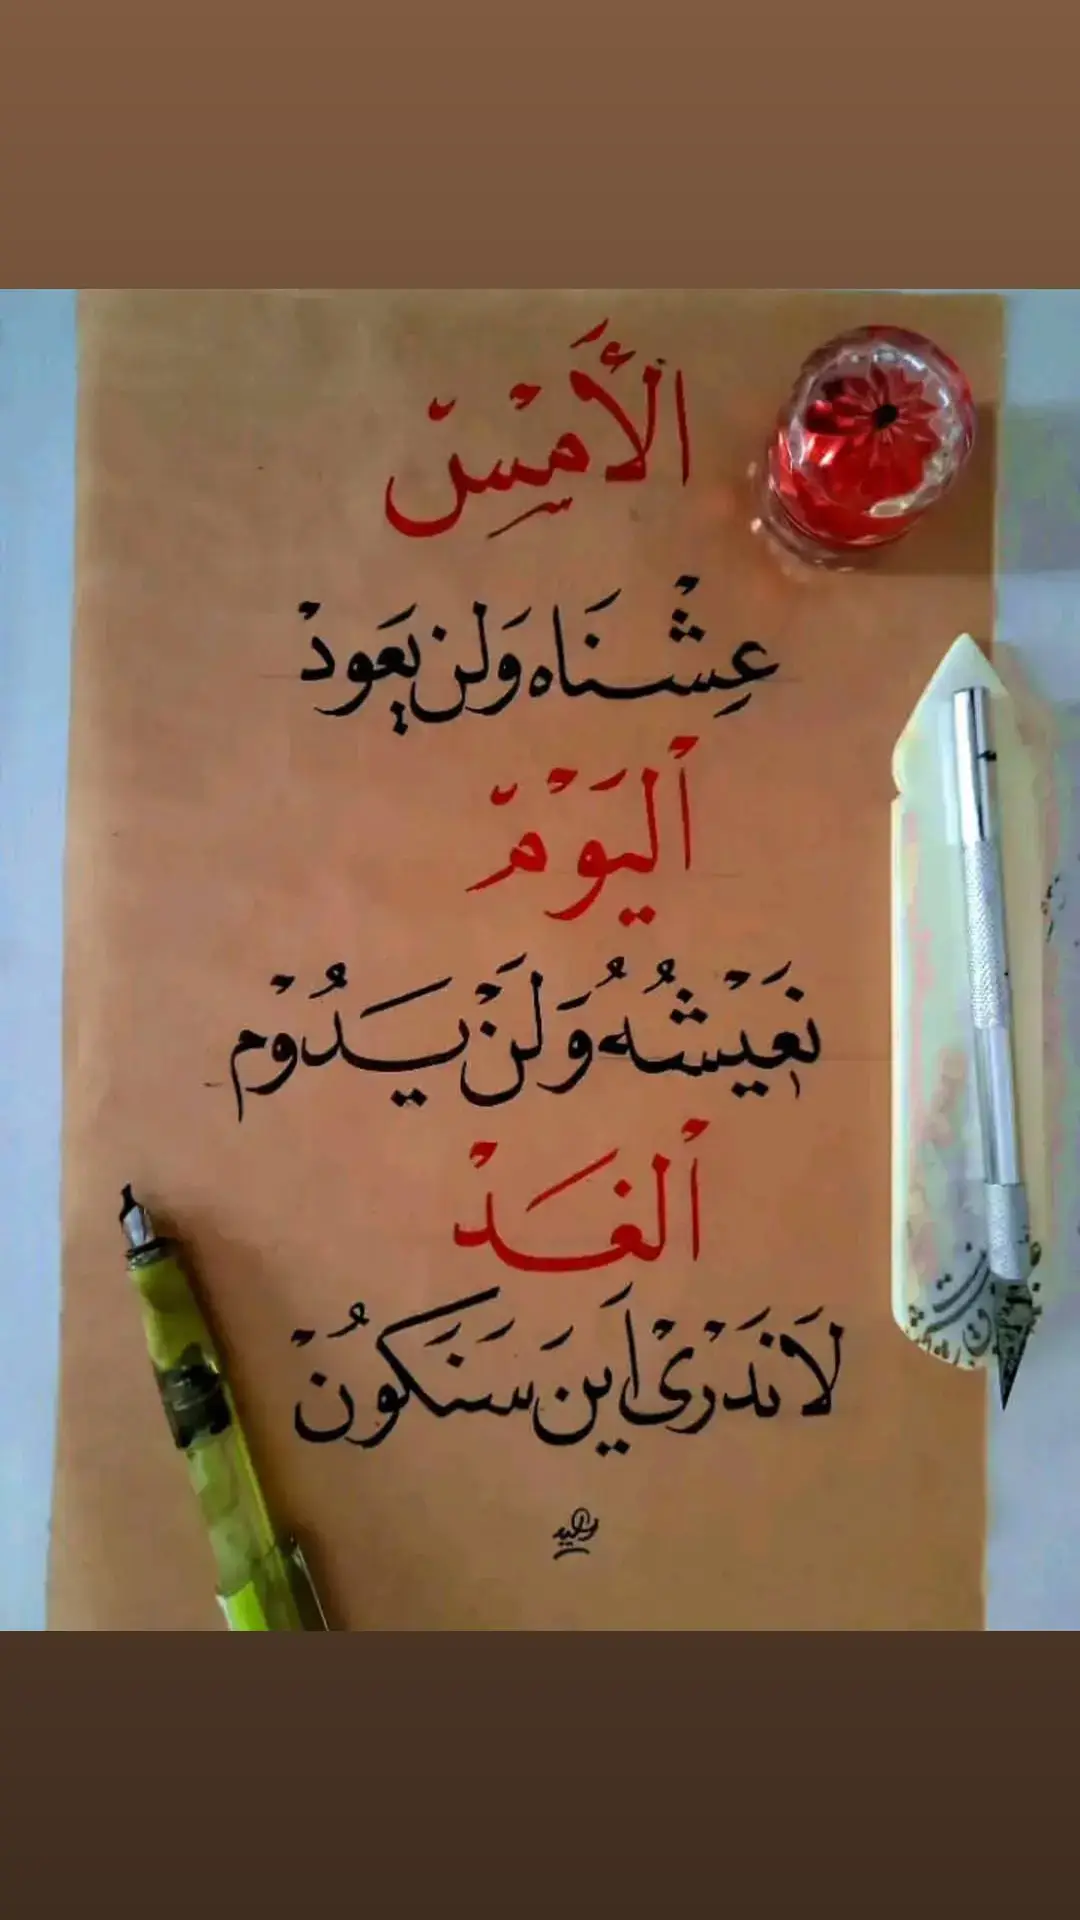 الأَمْسِ
عِشْنَاه وَلَن يَعَودْ
اْليَوْم
نَعَيْشُهُ وَلَنْ يَدُوْم
اْلغَدْ
لَا نَدَرْىْ اَينَ سَنَكَونُْ